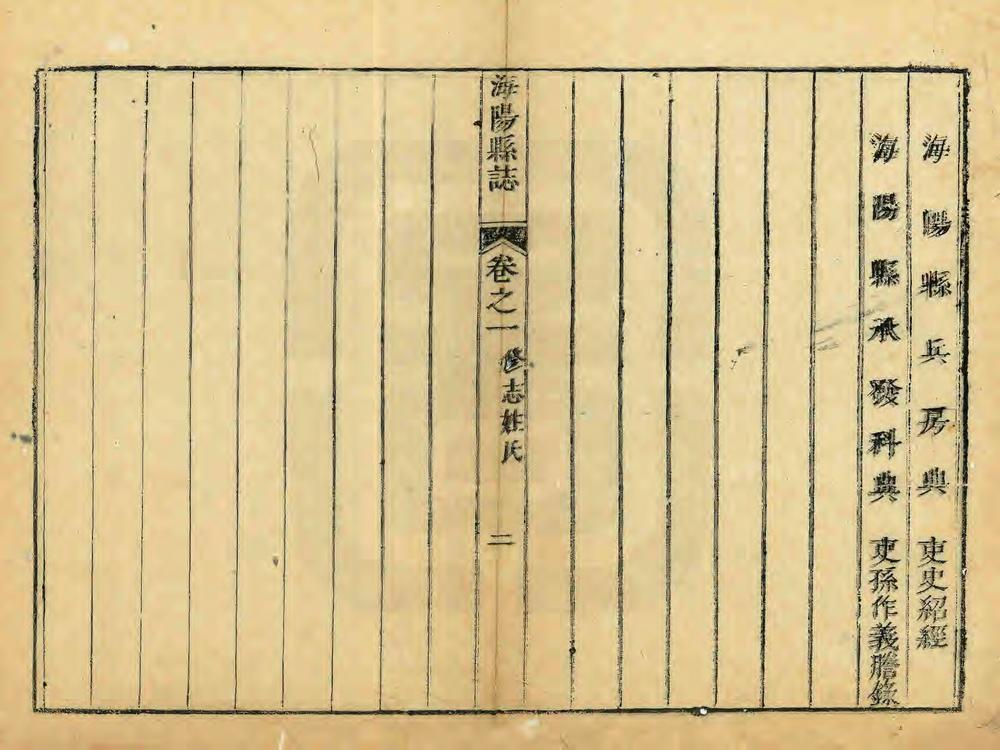 海陽縣兵房典吏史紹經
海陽縣承發科典吏孫作義謄錄
海陽縣誌 卷之一 修志姓氏 二